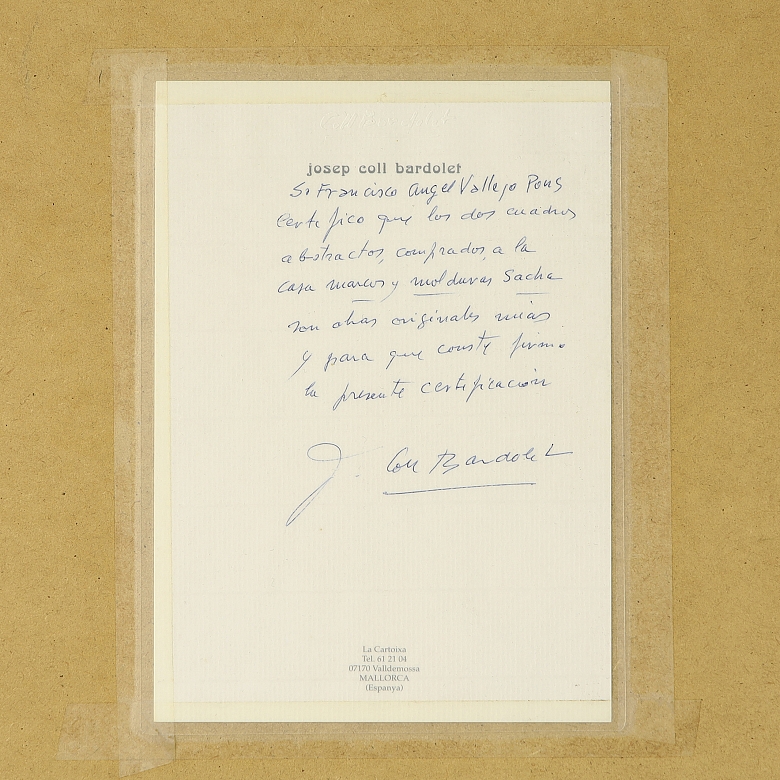 josep coll bardolet
Sr Francisco Angel Vallejo Pons
Certifico que los dos cuadros
abstractos, comprados, a la
casa marcos y molduras Sacha
son obras originales mias
y para que conste firmo
la presente certificación
J. Coll Bardolet
La Cartoixa
Tel. 61 21 04
07170 Valldemossa
MALLORCA
(Espanya)